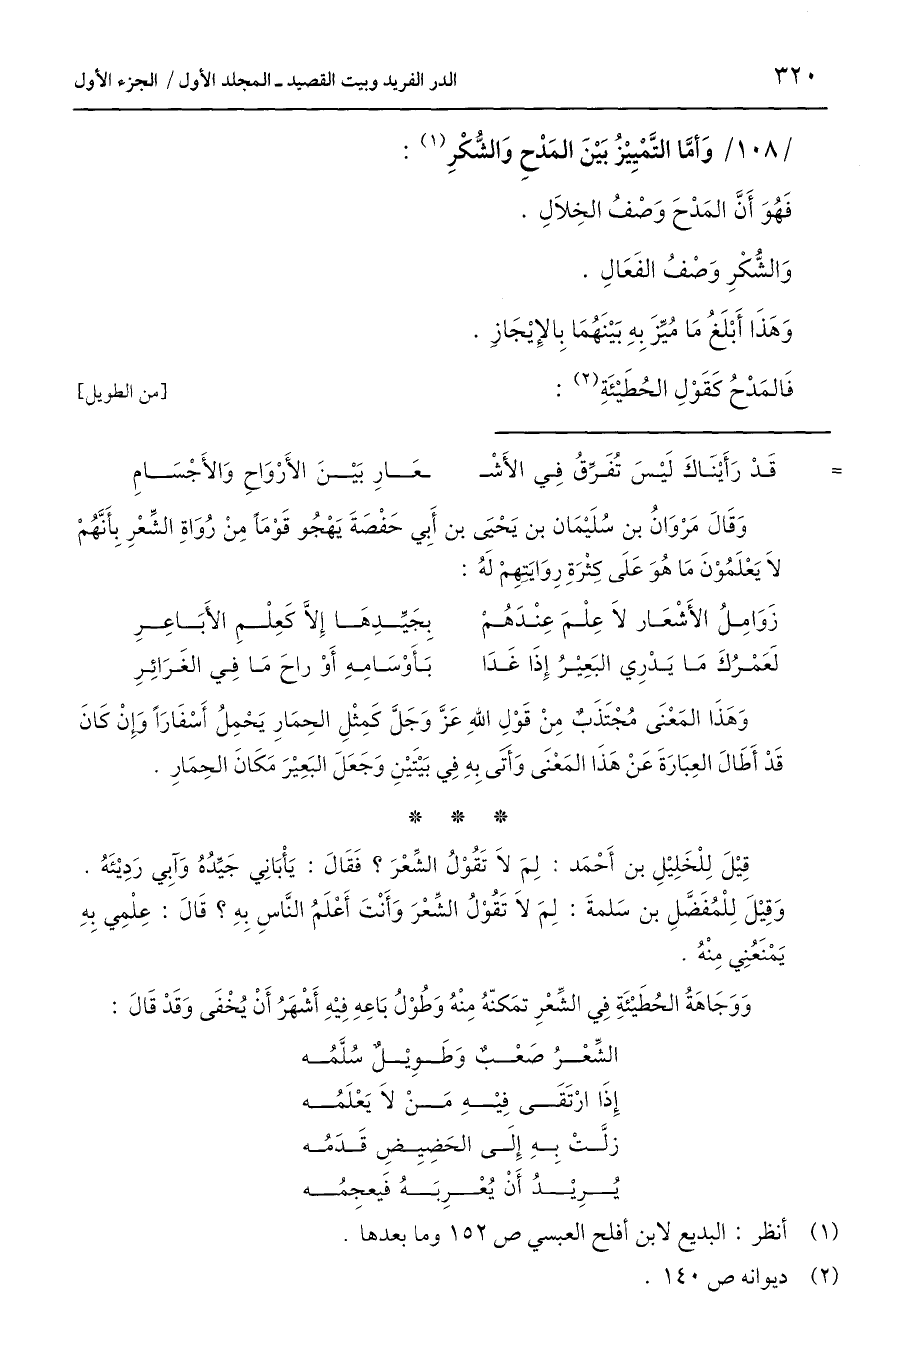 ٣٢٠ الدر الفريد وبيت القصيد ـ المجلد الأول / الجزء الأول
/١٠٨/ وَأَمَّا التَّمْيِيْزُ بَيْنَ المَدْحِ وَالشُّكْرِ(١) :
فَهُوَ أَنَّ المَدْحَ وَصْفُ الخِلاَلِ .
وَالشُّكْرِ وَصْفُ الفَعَالِ .
وَهَذَا أَبْلَغُ مَا مُيِّزَ بِهِ بَيْنَهُمَا بِالإِيْجَازِ .
فَالمَدْحُ كَقَوْلِ الحُطَيْئَةِ(٢) : [من الطويل]
= قَدْ رَأَيْنَاكَ لَيْسَ تُفَرِّقُ فِي الأَشْـ ـعَـارِ بَيْـنَ الأَرْوَاحِ وَالأَجْسَـامِ
وَقَالَ مَرْوَانُ بن سُلَيْمَان بن يَحْيَى بن أَبِي حَفْصَةَ يَهْجُو قَوْمَاً مِنْ رُوَاةِ الشِّعْرِ بِأَنَّهُمْ
لاَ يَعْلَمُوْنَ مَا هُوَ عَلَى كِثْرَةِ رِوَايَتِهِمْ لَهُ :
زَوَامِلُ الأَشْعَارِ لاَ عِلْمَ عِنْدَهُمْ بِجَيِّدِهَا إِلاَّ كَعِلْمِ الأَبَاعِرِ
لَعَمْرُكَ مَا يَدْرِي البَعِيْرُ إِذَا غَدَا بِأَوْسَامِهِ أَوْ رَاحَ مَا فِي الغَرَائِرِ
وَهَذَا المَعْنَى مُجْتَذَبٌ مِنْ قَوْلِ اللهِ عَزَّ وَجَلَّ كَمِثْلِ الحِمَارِ يَحْمِلُ أَسْفَارَاً وَإِنْ كَانَ
قَدْ أَطَالَ العِبَارَةَ عَنْ هَذَا المَعْنَى وَأَتَى بِهِ فِي بَيْتَيْنِ وَجَعَلَ البَعِيْرَ مَكَانَ الحِمَارِ .
* * *
قِيْلَ لِلْخَلِيْلِ بن أَحْمَد : لِمَ لاَ تَقُوْلُ الشِّعْرَ ؟ فَقَالَ : يَأْبَانِي جَيِّدُهُ وَآبِي رَدِيْئَهُ .
وَقِيْلَ لِلْمُفَضَّلِ بن سَلمةَ : لِمَ لاَ تَقُوْلُ الشِّعْرَ وَأَنْتَ أَعْلَمُ النَّاسِ بِهِ ؟ قَالَ : عِلْمِي بِهِ
يَمْنَعُنِي مِنْهُ .
وَوَجَاهَةُ الحُطَيْئَةِ فِي الشِّعْرِ تمَكنّهُ مِنْهُ وَطُوْلُ بَاعِهِ فِيْهِ أَشْهَرُ أَنْ يُخْفَى وَقَدْ قَالَ :
الشِّعْـرُ صَعْبٌ وَطَوِيْلٌ سُلَّمُه
إِذَا ارْتَقَى فِيْهِ مَنْ لاَ يَعْلَمُه
زلَّتْ بِهِ إِلَى الحَضِيضِ قَدَمُه
يُرِيْدُ أَنْ يُعْرِبَهُ فَيعجمُه
(١) أنظر : البديع لابن أفلح العبسي ص ١٥٢ وما بعدها .
(٢) ديوانه ص ١٤٠ .